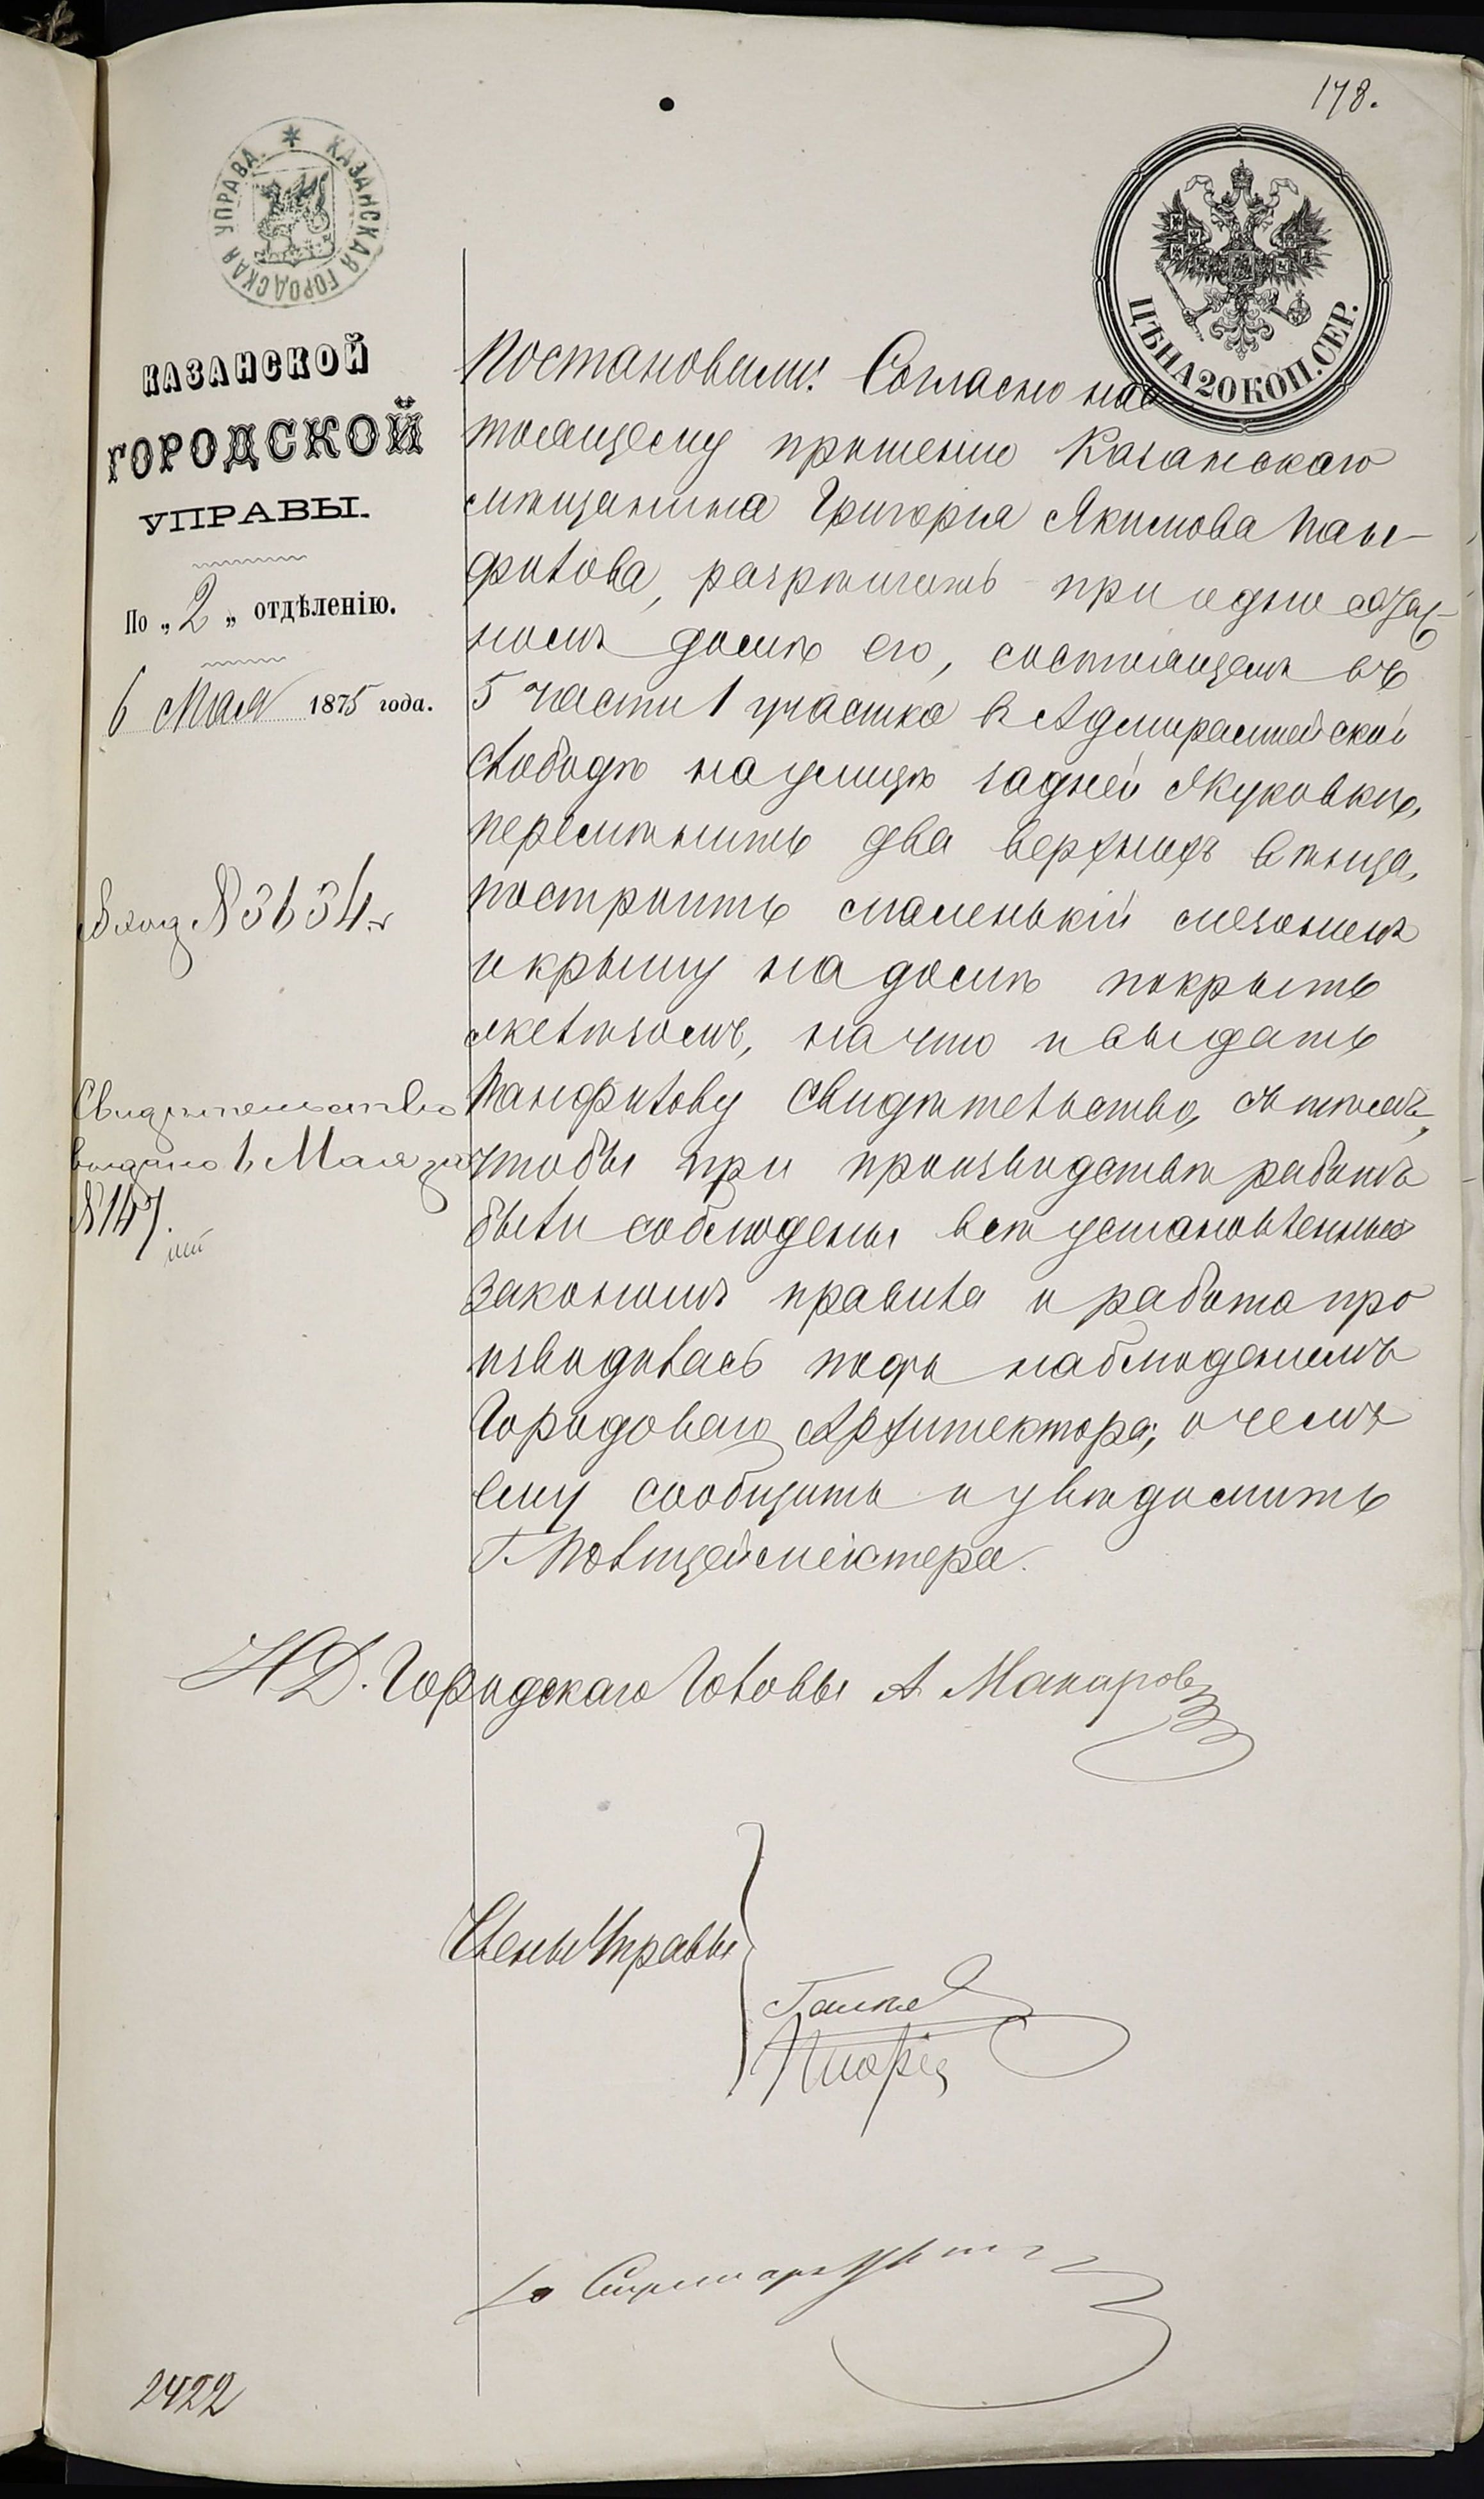 178.
КАЗАНСКАЯ ГОРОДСКАЯ УПРАВА.
ЦѢНА 20 КОП. СЕР.
КАЗАНСКОЙ
ГОРОДСКОЙ
УПРАВЫ.
По „2„ отдѣленію.
6 Мая 1875 года.
Вход №3634
Свидѣтельство
выдано 6 Мая за
№147.
Постановили: Согласно нас
тоящему прошенію Казанскаго
мѣщанина Григорія Якимова Пан-
филова, разрѣшить при одно этаж-
номъ домѣ его, состоящемъ въ
5 части 1 участка в Адмиралтейской
слободѣ на улицѣ задней Якуковкѣ,
перемѣнить два верхнихъ вѣнца,
построить маленькій мезонинъ
и крышу на домѣ покрыть
желѣзомъ, на что и выдать
Панфилову свидѣтельство, съ тѣмъ,
чтобы при производствѣ работъ
были соблюдены всѣ установленныя
закономъ правила и работа про
изводилась подъ наблюденіемъ
Городоваго Архитектора, о чемъ
ему сообщить и увѣдомить
Г. Полицеймейстера.
И.Д. Городскаго Головы А. Макаров
Члены Управы
Секретарь
2422